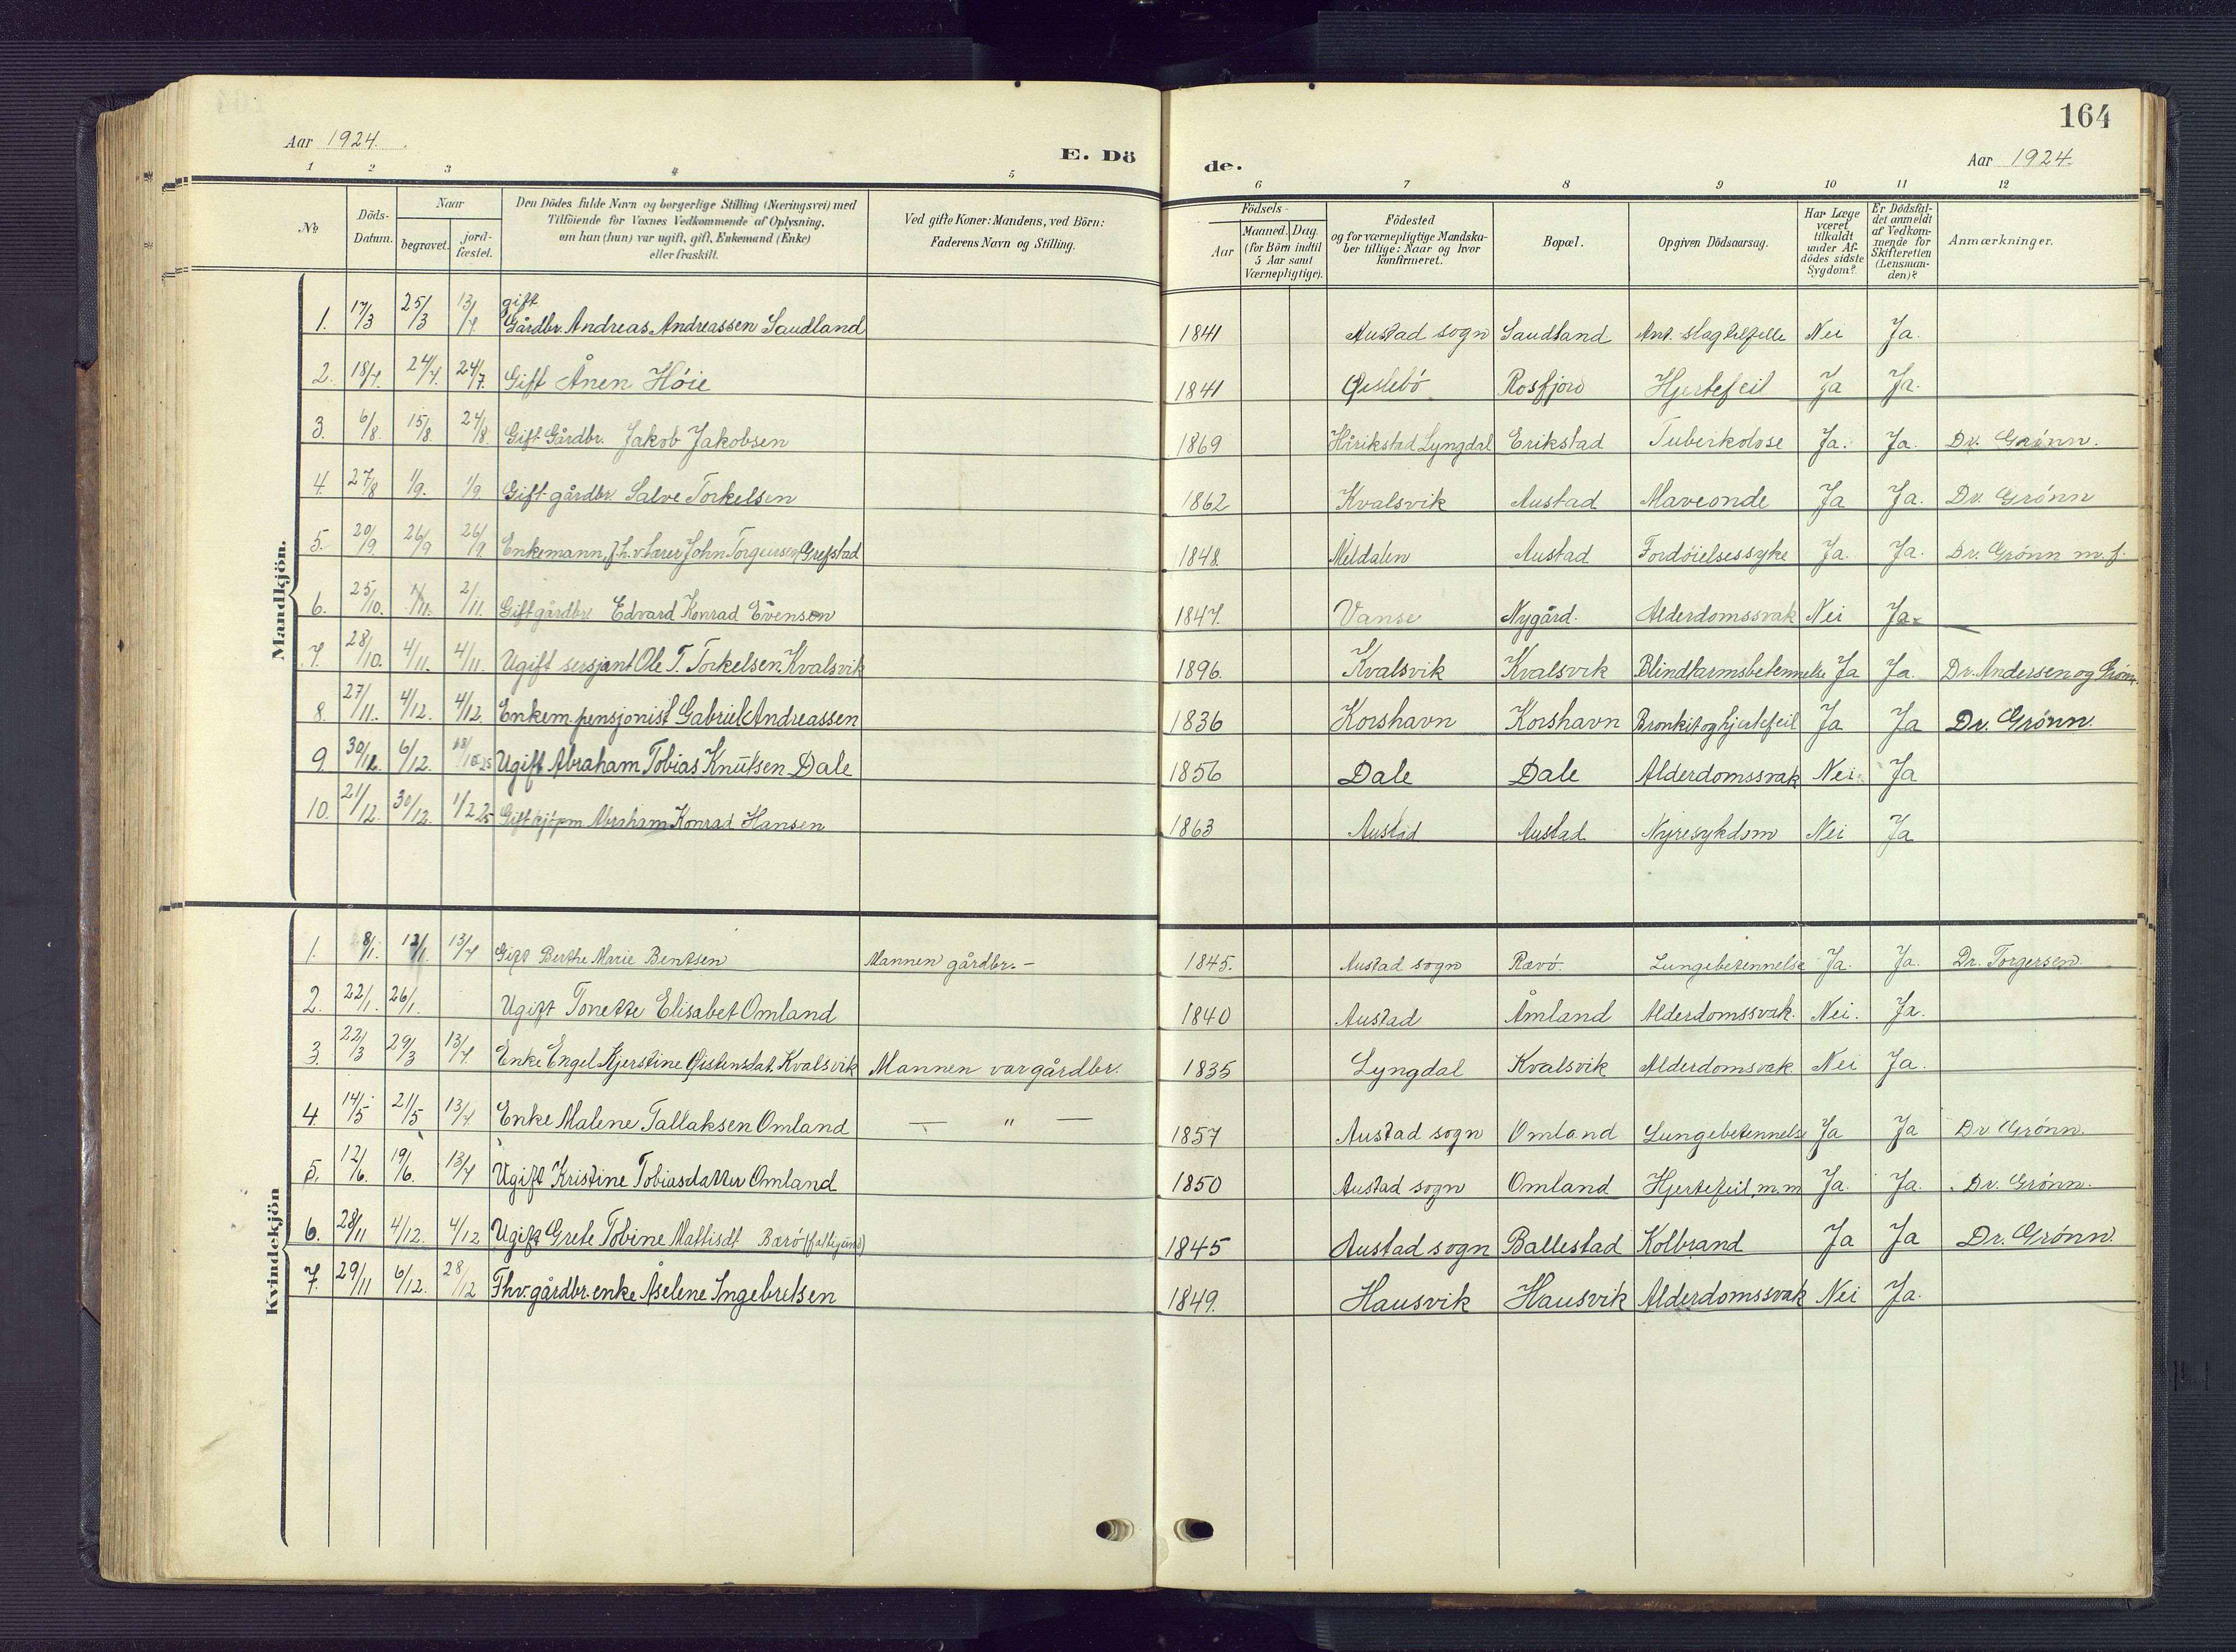 164
Aar 1924.
E. Dö
de.
Aar 1924.
1 2 3 4 5 6 7 8 9 10 11 12
No
Döds-Datum.
Naar
begravet.
jord-fæstet.
Den Dödes fulde Navn og borgerlige Stilling (Næringsvei) med
Tilföiende for Voxnes Vedkommende af Oplysning,
om han (hun) var ugift, gift, Enkemand (Enke)
eller fraskilt.
Ved gifte Koner: Mandens, ved Börn:
Faderens Navn og Stilling.
Födsels-
Aar
Maaned. Dag.
(for Börn indtil
5 Aar samt
Værnepligtige).
Födested
og for værnepligtige Mandska-
ber tillige: Naar og hvor
konfirmeret.
Bopæl.
Opgiven Dödsaarsag.
Har Læge
været
tilkaldt
under Af-
dödes sidste
Sygdom?
Er Dödsfal-
det anmeldt
af Vedkom-
mende for
Skifteretten
(Lensman-
den)?
Anmærkninger.
Mandkjön.
1. 17/3 25/3 13/4 gift Gårdbr. Andreas Andreassen Saudland 1841 Austad sogn Saudland Ant. slagtilfelle Nei Ja.
2. 18/4. 24/4. 24/7. Gift Ånen Høie 1841 Øislebö Rosfjord Hjertefeil Ja Ja.
3. 6/8. 15/8. 24/8. Gift Gårdbr. Jakob Jakobsen 1869 Hårikstad Lyngdal Erikstad Tuberkolose Ja. Ja. Dr. Grønn.
4. 27/8 1/9. 1/9. Gift gårdbr. Salve Torkelsen 1862 Kvalsvik Austad Maveonde Ja Ja. Dr. Grønn
5. 20/9. 26/9 26/9 Enkemann, f.h.v. lærer John Torgeirsen Grefstad 1848. Meldalen Austad Fordøielsessyke Ja. Ja. Dr. Grønn m. f.
6. 25/10. 1/11. 2/11. Gift gårdbr. Edvard Konrad Evensen 1847. Vanse Nygård. Alderdomssvak Nei Ja. —
7. 28/10. 4/11. 4/11. Ugift sersjant Ole T. Torkelsen Kvalsvik 1896. Kvalsvik Kvalsvik Blindtarmsbetennelse Ja Ja. Dr. Andersen og Grønn.
8. 27/11. 4/12. 4/12. Enkem. pensjonist Gabriel Andreassen 1836 Korshavn Korshavn Bronkit og hjertefeil Ja Ja Dr. Grønn.
9. 30/12. 6/12. Ugift Abraham Tobias Knutsen Dale 1856 Dale Dale Alderdomssvak Nei. Ja
10. 21/12. 30/12. 1/2 25 Gift kjøpm Abraham Konrad Hansen 1863 Austad Austad Nyresykdom Nei Ja
Kvindekjön
1. 8/1. 12/1 13/4 Gift Berthe Marie Bentsen Mannen gårdbr. - 1845. Austad sogn Rævö. Lungebetennelse Ja. Ja. Dr. Torgersen.
2. 22/1. 26/1. Ugift Tonette Elisabet Omland 1840 Austad Åmland Alderdomssvak. Nei. Ja.
3. 22/3 29/3 13/4. Enke Engel Kjerstine Øistensdat. Kvalsvik Mannen var gårdbr. 1835 Lyngdal Kvalsvik Alderdomsvak Nei Ja.
4. 14/5 21/5 13/4 Enke Malene Tallaksen Omland — " — 1857 Austad sogn Omland Lungebetennelse Ja Ja Dr. Grønn.
5. 12/6. 19/6. 13/4 Ugift Kristine Tobiasdatter Omland 1850 Austad sogn Omland Hjertefeil, m.m Ja. Ja. Dr. Grønn.
6. 28/11 4/12. 4/12 Ugift Grete Tobine Mattisdt Bærö 1845 Austad sogn Ballestad Kolbrand Ja Ja Dr. Grønn
7. 29/11 6/12. 28/12 Fhv. gårdbr. enke Åselene Ingebretsen 1849. Hausvik Hausvik Alderdomssvak Nei Ja.